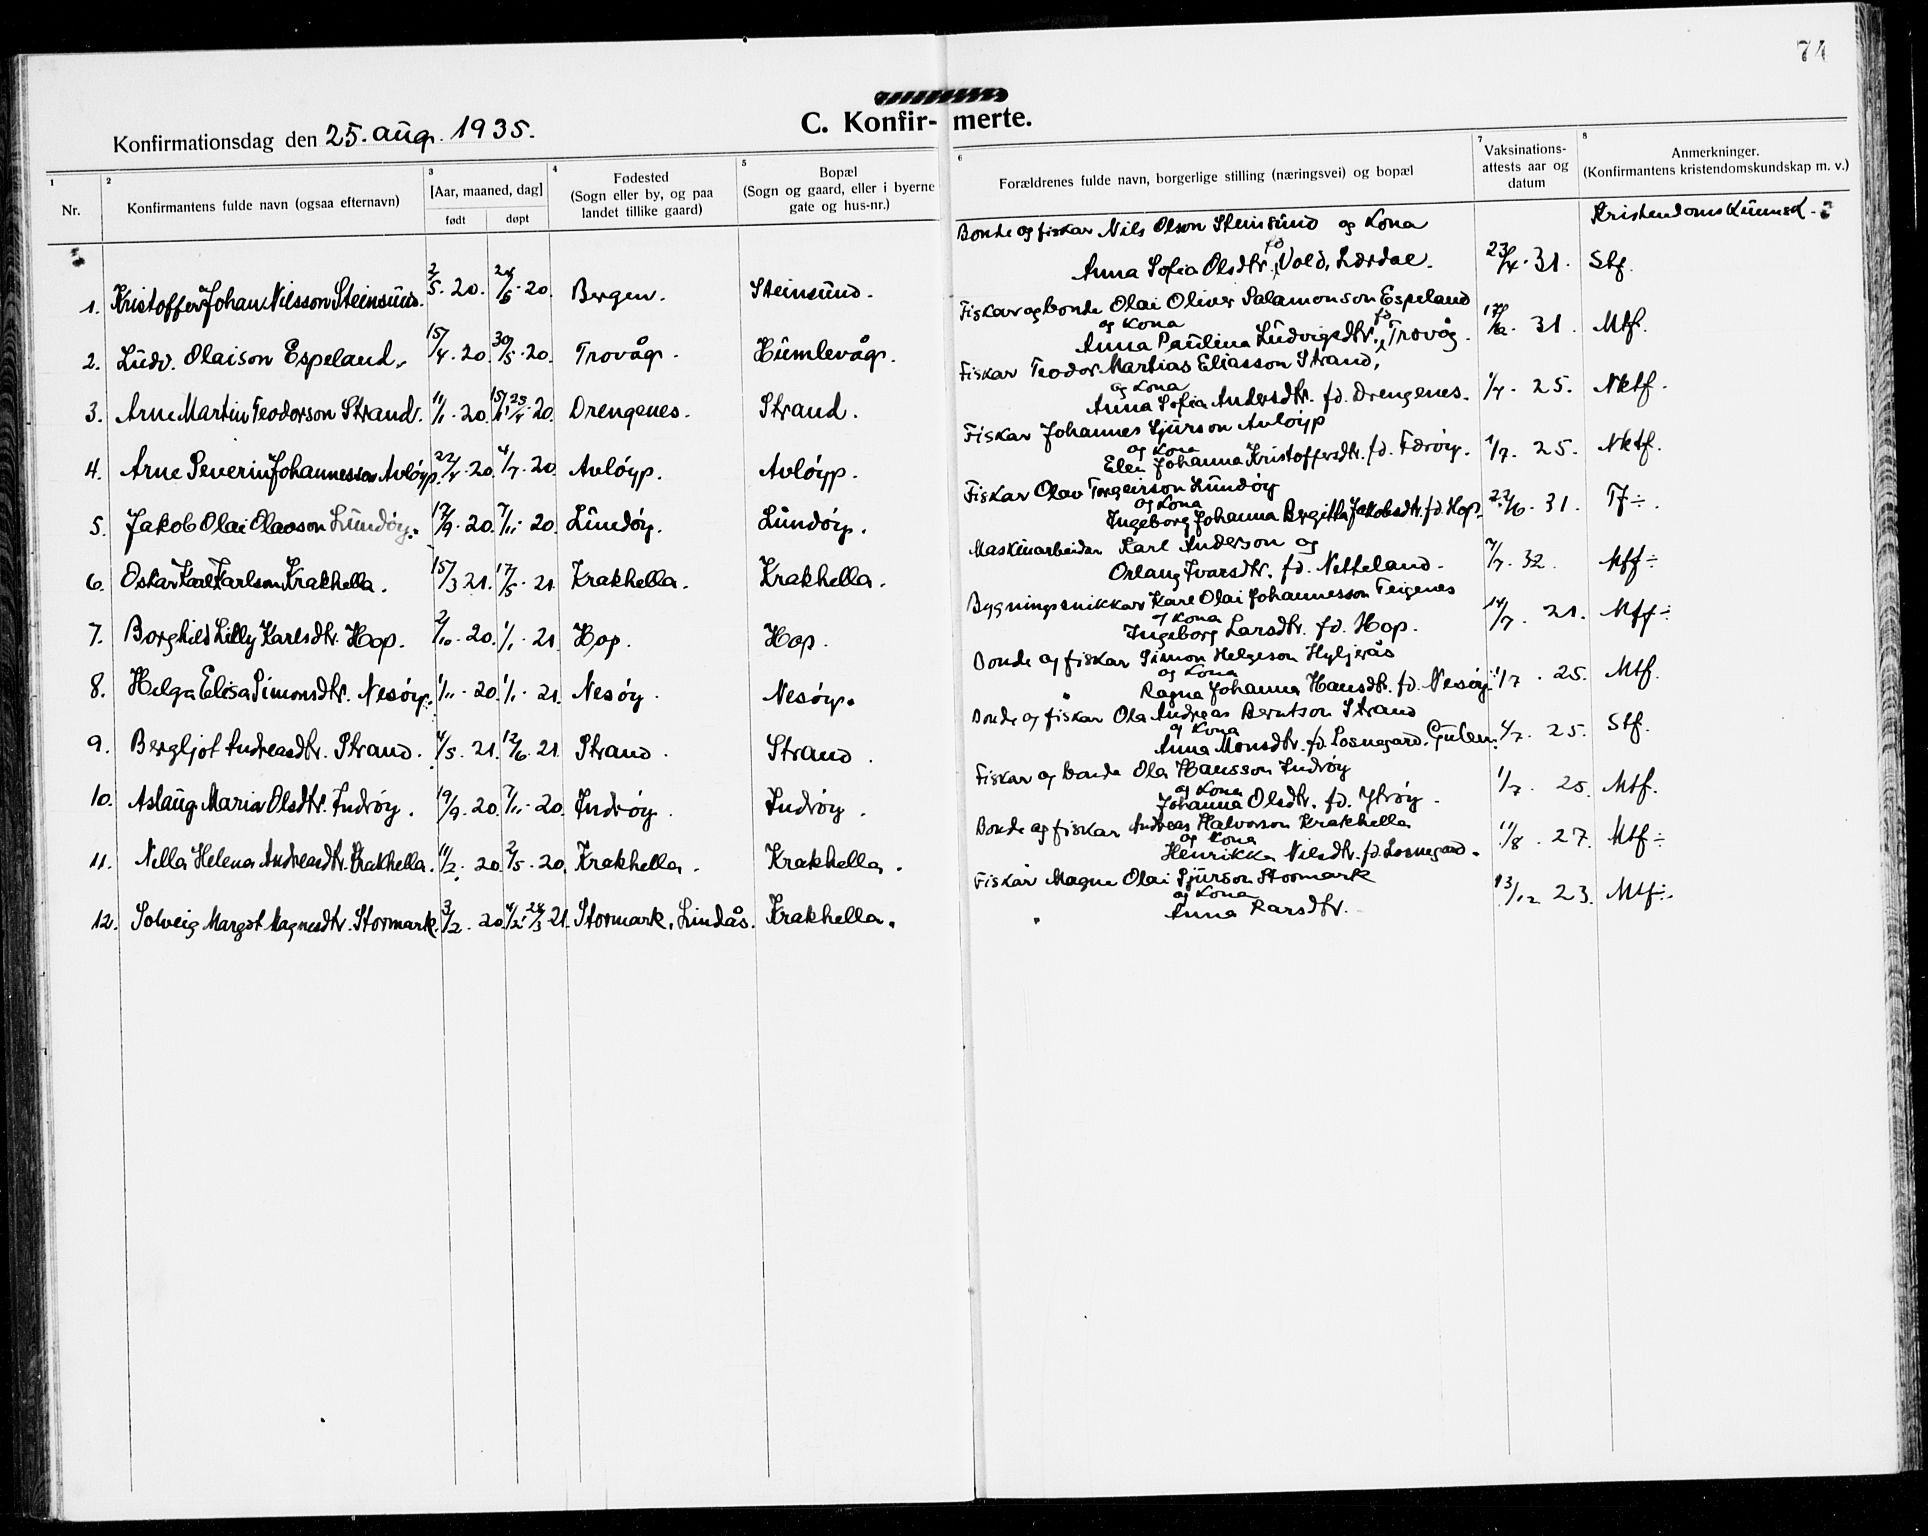 74
C. Konfir- merte.
Konfirmationsdag den 25. aug. 1935.
1 2 3 4 5 6 7 8
Nr.
Konfirmantens fulde navn (ogsaa efternavn)
[Aar, maaned, dag]
født døpt
Fødested
(Sogn eller by, og paa
landet tillike gaard)
Bopæl
(Sogn og gaard, eller i byerne
gate og hus-nr.)
Forældrenes fulde navn, borgerlige stilling (næringsvei) og bopæl
Vaksinations-
attests aar og
datum
Anmerkninger.
(Konfirmantens kristendomskundskap m. v.)
Kristendomskunnsk.
Bonde og fiskar Nils Olson Steinsund og kona
1. Kristoffer Johan Nilsson Steinsund. 2/5.20. 24/6.20. Bergen. Steinsund. Anna Sofia Olsdtr. fd. Vold, Lærdal. 23/4.31. Stf.
Fiskar og bonde Olai Oliver Salamonson Espeland
og kona
2. Ludv. Olaison Espeland. 15/4.20. 30/5.20. Trovåg. Humlevåg. Anna Paulina Ludvigsdtr. fd. Trovåg. 17/12.31. Mtf.
Fiskar Teodor Martias Eliasson Strand,
og kona
3. Arne Martin Teodorson Strand. 11/1.20. 15/1 25/4.20. Drengenes. Strand. Anna Sofia Andersdtr. fd. Drengenes. 1/7.25. Nktf.
Fiskar Johannes Sjurson Avløyp
og kona
4. Arne Severin Johannesson Avløyp. 22/4.20. 4/7.20. Avløyp. Avløyp. Elen Johanna Kristoffersdtr. fd. Færøy. 1/7.25. Nktf.
Fiskar Olav Torgeirson Lundøy
og kona
5. Jakob Olai Olavson Lundøy. 17/9.20. 7/11.20. Lundøy. Lundøy. Ingeborg Johanna Bergitta Jakobsdtr. fd. Hop. 22/6.31. Tf÷.
Maskinarbeidar Karl Anderson og
6. Oskar Karl Karlson Krakhella. 15/3 21. 17/5.21. Krakhella. Krakhella. Orlaug Ivarsdtr. fd. Netteland. 7/7.32. Mtf÷
Bygningssnikkar Karl Olai Johannesson Teigenes
og kona
7. Borghild Lilly Karlsdtr. Hop. 2/10.20. 1/1.21. Hop. Hop. Ingeborg Larsdtr. fd. Hop. 14/7.21. Mtf÷
Bonde og fiskar Simon Helgeson Hyljerås
og kona
8. Helga Elisa Simonsdtr. Nesøy. 1/11.20. 1/1.21. Nesøy. Nesøy. Ragna Johanna Hansdtr. fd. Nesøy. 1/7.25. Mtf.
Bonde og fiskar Ola Andreas Berntson Strand
og kona
9. Bergljot Andreasdtr. Strand. 4/5.21. 12/6.21. Strand. Strand. Anna Monsdtr. fd. Losnegard. Gulen. 4/7.25. Stf.
Fiskar og bonde Ola Hansson Indrøy
og kona
10. Aslaug Maria Olsdtr. Indrøy. 19/9.20. 7/11.20. Indrøy. Indrøy. Johanna Olsdtr. fd. Ytrøy. 1/7.25. Mtf.
Bonde og fiskar Andreas Halvorson Krakhella
og kona
11. Nella Helena Andreasdtr. Krakhella. 11/2.20. 2/5.20. Krakhella. Krakhella. Henrikka Nilsdtr. fd. Losnegard. 11/8.27. Mtf÷
Fiskar Magne Olai Sjurson Stormark
og kona
12. Solveig Margot Magnesdtr. Stormark. 3/2.20. 4/2 24/3 21. Stormark, Lindås. Krakhella. Anna Larsdtr. 13/12 23. Mtf÷.